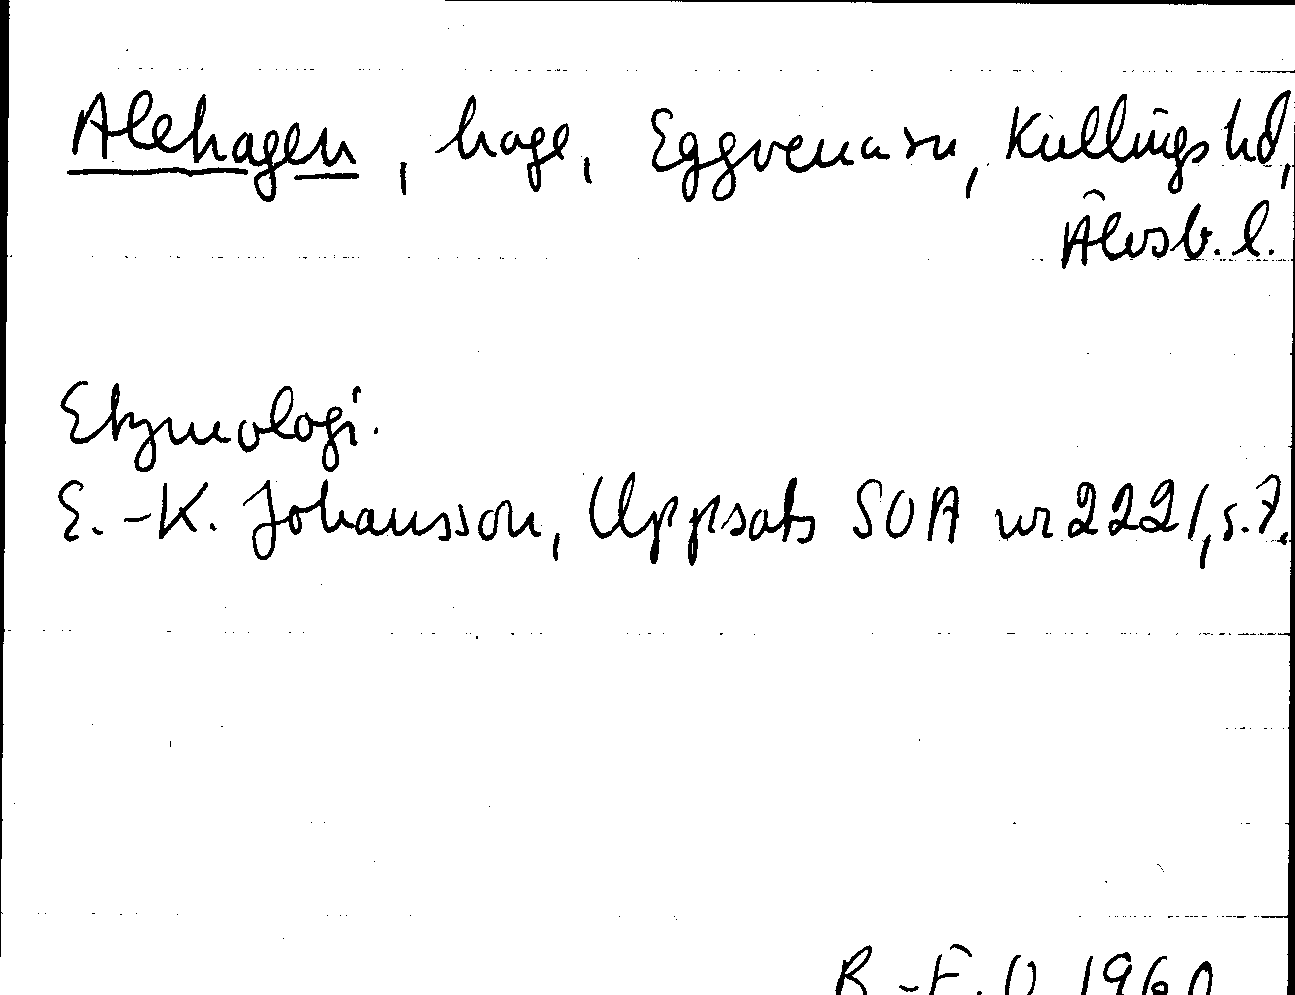 Alehagen, hage, Eggvena sn, Kullings hd,
Älvsb. l.
Etymologi.
E.-K. Johansson, Uppsats SOA nr 2221, s. 7.
B.-E. O 1960